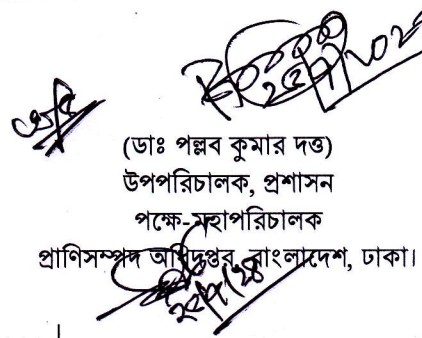 (ডাঃ পল্লব কুমার দত্ত)
উপপরিচালক, প্রশাসন
পক্ষে-মহাপরিচালক
প্রাণিসম্পদ অধিদপ্তর, বাংলাদেশ, ঢাকা।